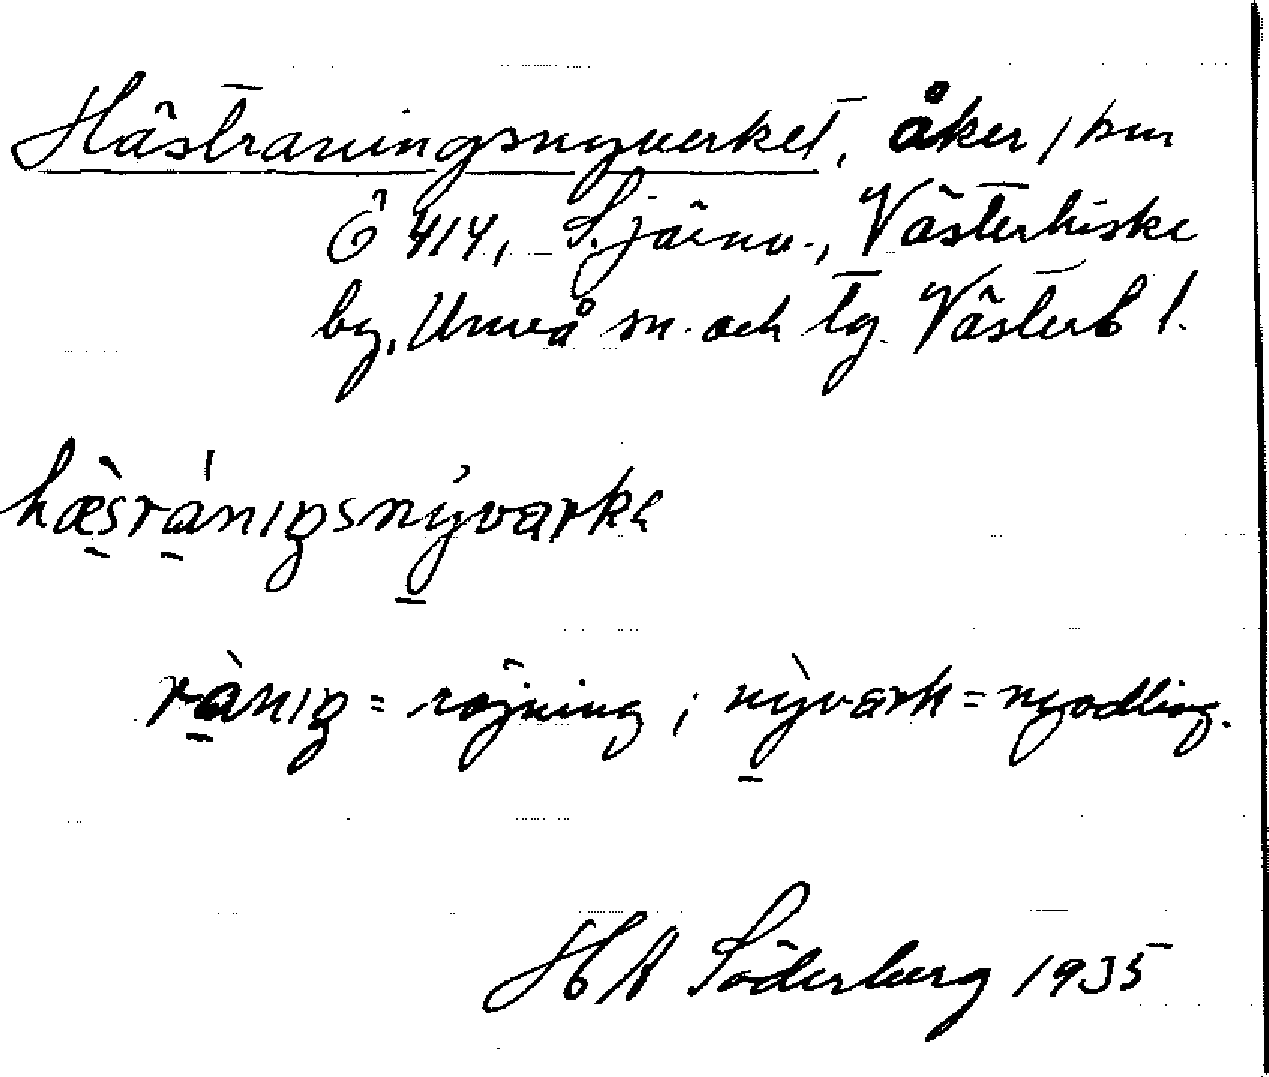 Hästraningsnyverket, åker,
Ö 414, S. Västerhiske
by, Umeå sn. och tg. Västerb l.
hæsránıgsnývarke
rànıg = röjning ; nỳvark = nyodling.
HA Söderberg 1935